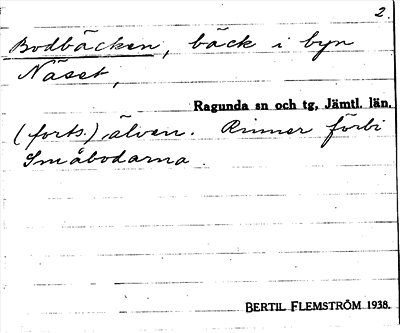 2.
Bodbäcken, bäck i byn
Näset,
Ragunda sn och tg, Jämtl. län.
(forts.) älven. Rinner förbi
Småbodarna.
BERTIL FLEMSTRÖM 1938.